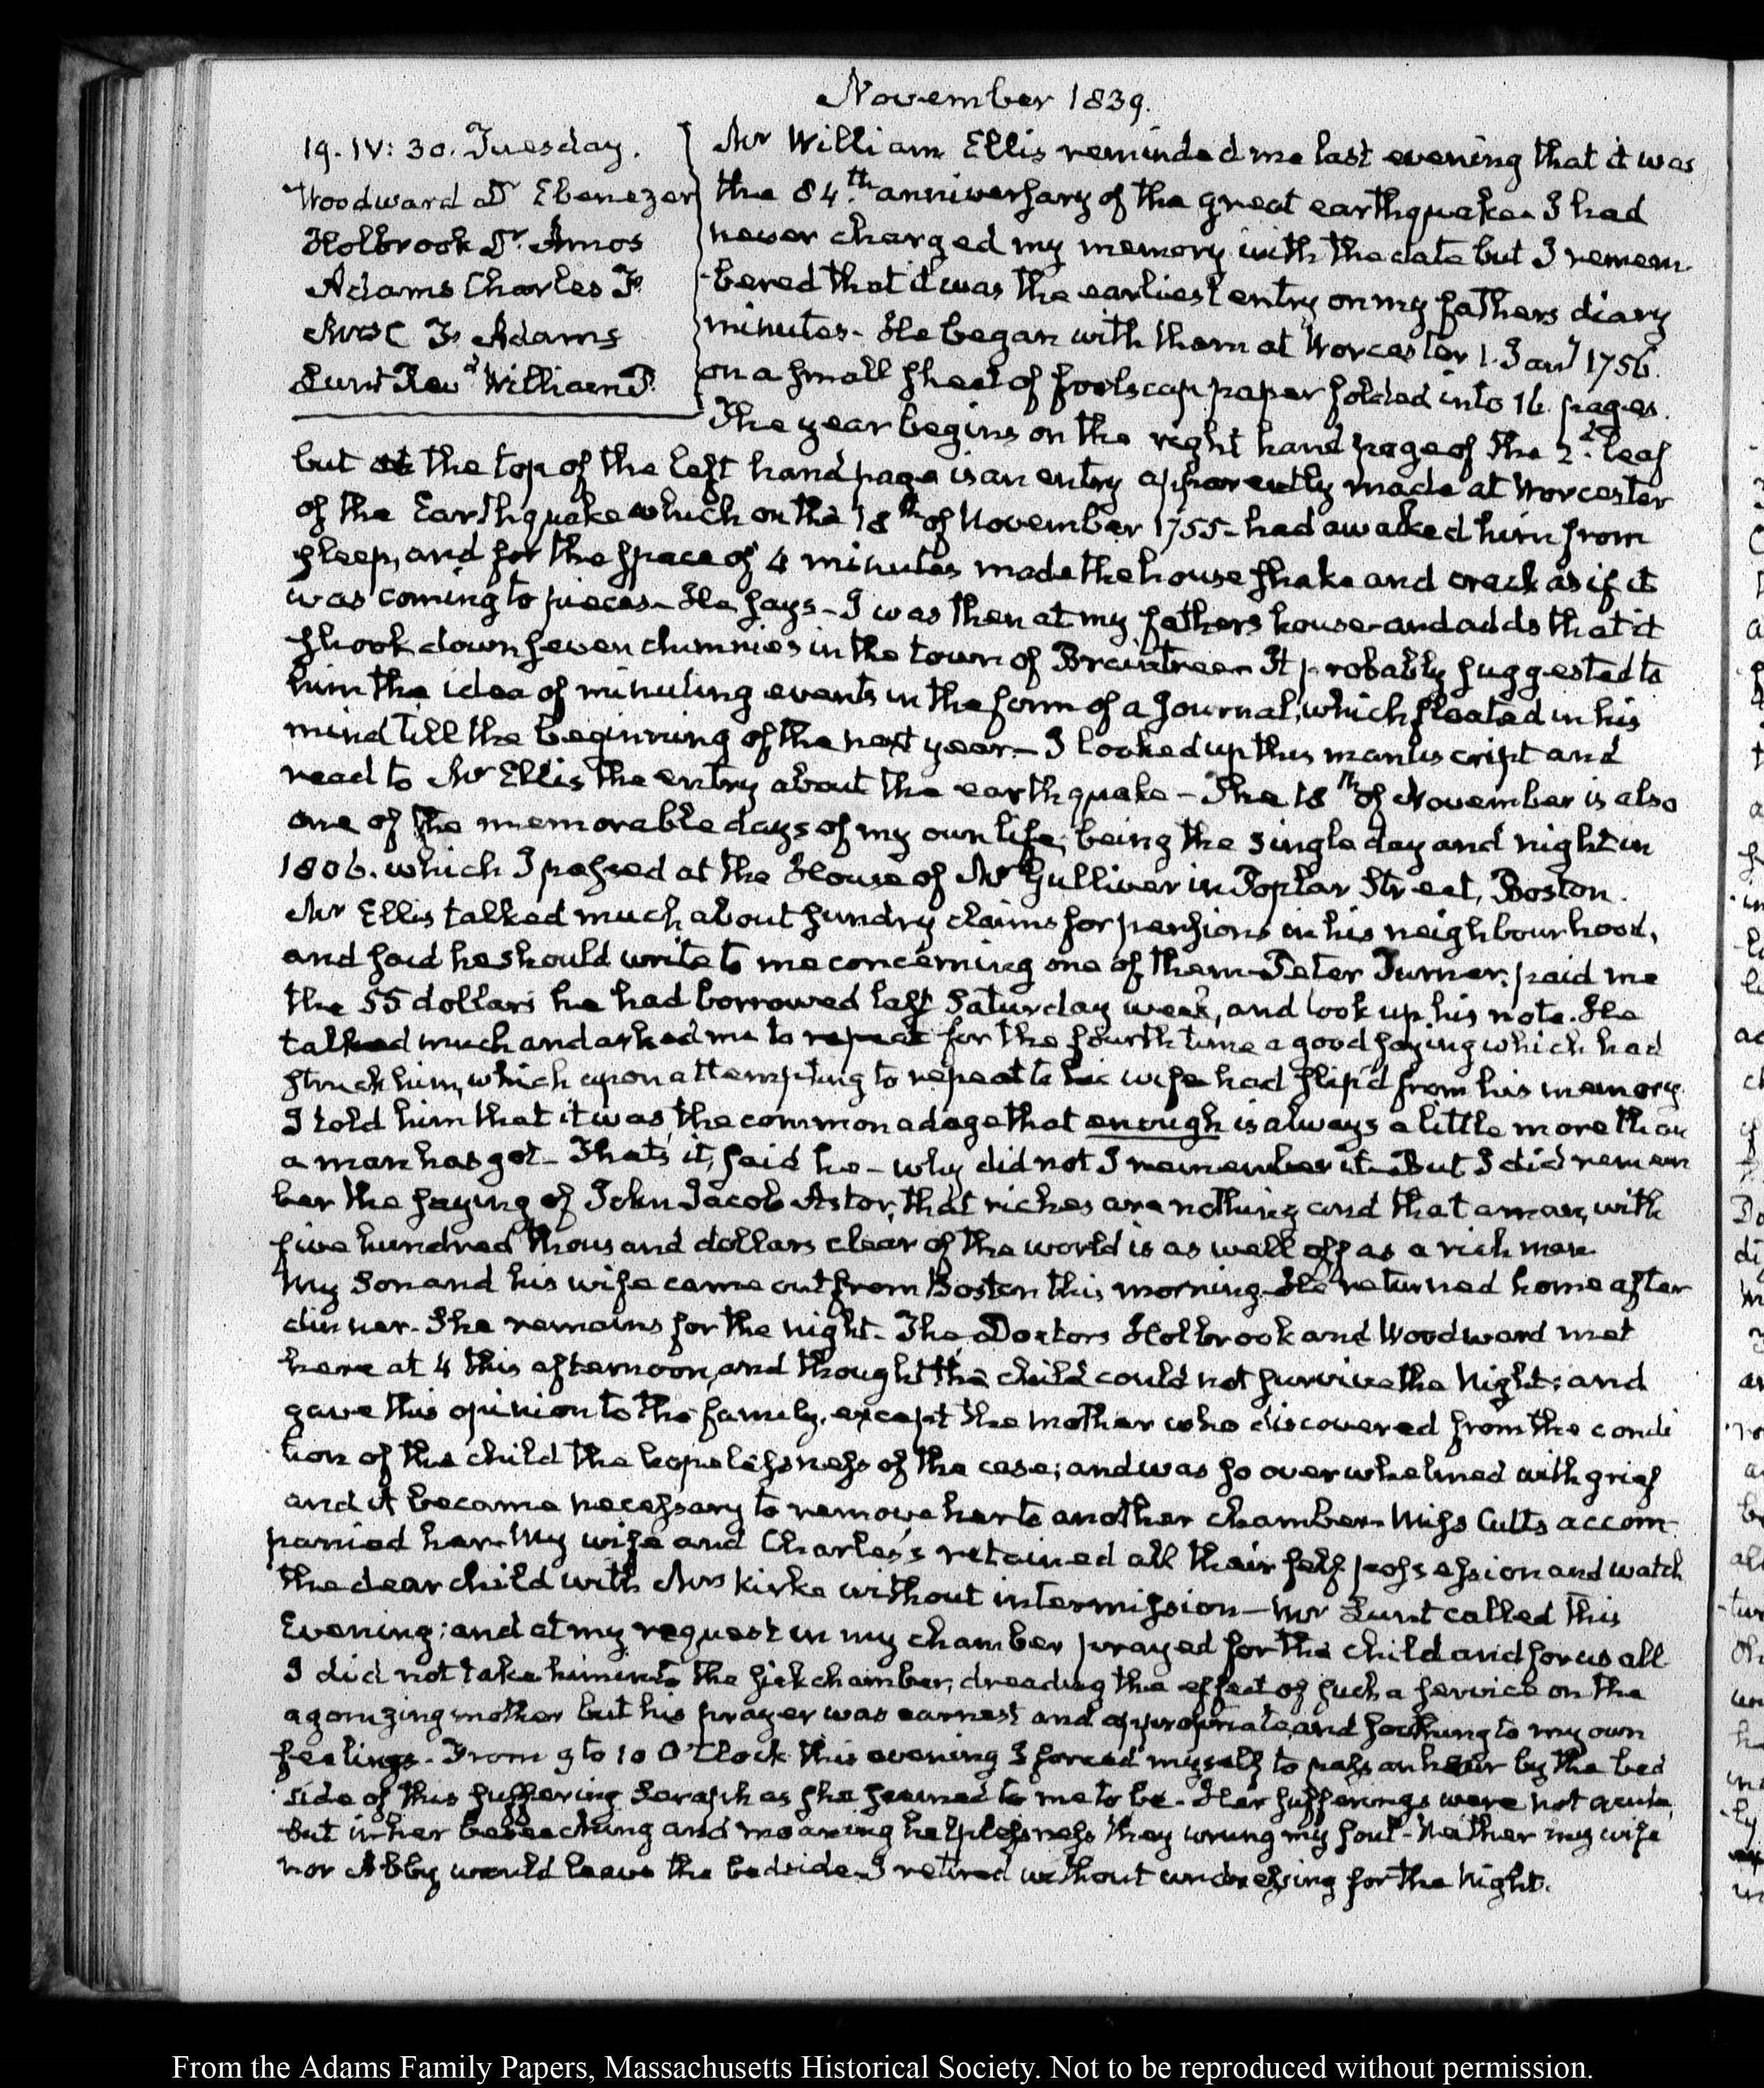 November 1839.
19. IV: 30. Tuesday.
Woodward Dr Ebenezer
Holbrook Dr. Amos
Adams Charles F.
Mrs C F. Adams
Lunt Revd William P.
Mr William Ellis reminded me last evening that it was
the 84.th anniversary of the great earthquake. I had
never charged my memory with the date but I remem-
-bered that it was the earliest entry on my fathers diary
minutes- He began with them at Worcester 1. Jany 1756.
on a small sheet of foolscap paper folded into 16 pages.
The year begins on the right hand page of the 2.d leaf
but at the top of the left hand page is an entry apparently made at Worcester
of the Earthquake which on the 18th of November 1755- had awaked him from
sleep, and for the space of 4 minutes made the house shake and crack as if it
was coming to pieces- He says- I was then at my fathers house- and adds that it
shook down seven chimnies in the town of Braintree- It probably suggested to
him the idea of minuting events in the form of a Journal, which floated in his
mind till the beginning of the next year- I looked up this manuscript and
read to Mr Ellis the entry about the earthquake- The 18th of November is also
one of the memorable days of my own life, being the single day and night in
1806. which I passed at the House of Mr Gulliver in Poplar Street, Boston.
Mr Ellis talked much about sundry claims for pensions in his neighbourhood,
and said he should write to me concerning one of them- Peter Turner, paid me
the 55 dollars he had borrowed last Saturday week, and took up his note. He
talked much and asked me to repeat for the fourth time a good saying which had
struck him, which upon attempting to repeat to his wife had slip'd from his memory.
I told him that it was the common adage that enough is always a little more than
a man has got- That's it, said he- why did not I remember it- But I did remem
ber the saying of John Jacob Astor, that riches are nothing and that a man, with
five hundred thousand dollars clear of the world is as well off as a rich man.
My Son and his wife came out from Boston this morning- He returned home after
dinner- She remains for the night- The Doctors Holbrook and Woodward met
here at 4 this afternoon, and thought the child could not survive the Night; and
gave this opinion to the family, except the mother who discovered from the condi
tion of the child the hopelessness of the case; and was so overwhelmed with grief
and it became necessary to remove her to another chamber- Miss Cutts accom-
panied her- My wife and Charles's retained all their self-possession and watch
the dear child with Mrs Kirke without intermission- Mr Lunt called this
Evening; and at my request in my chamber prayed for the child and for us all
I did not take him into the sick chamber, dreading the effect of such a service on the
agonizing mother but his prayer was earnest and appropriate, and soothing to my own
feelings- From 9 to 10 O'Clock this evening I forced myself to pass an hour by the bed
side of this suffering Seraph as she seemed to me to be- Her sufferings were not acute,
but in her beseeching and moaning helplessness they wrung my soul- Neither my wife
nor Abby would leave the bedside- I retired without undressing for the Night.
From the Adams Family Papers, Massachusetts Historical Society. Not to be reproduced without permission.